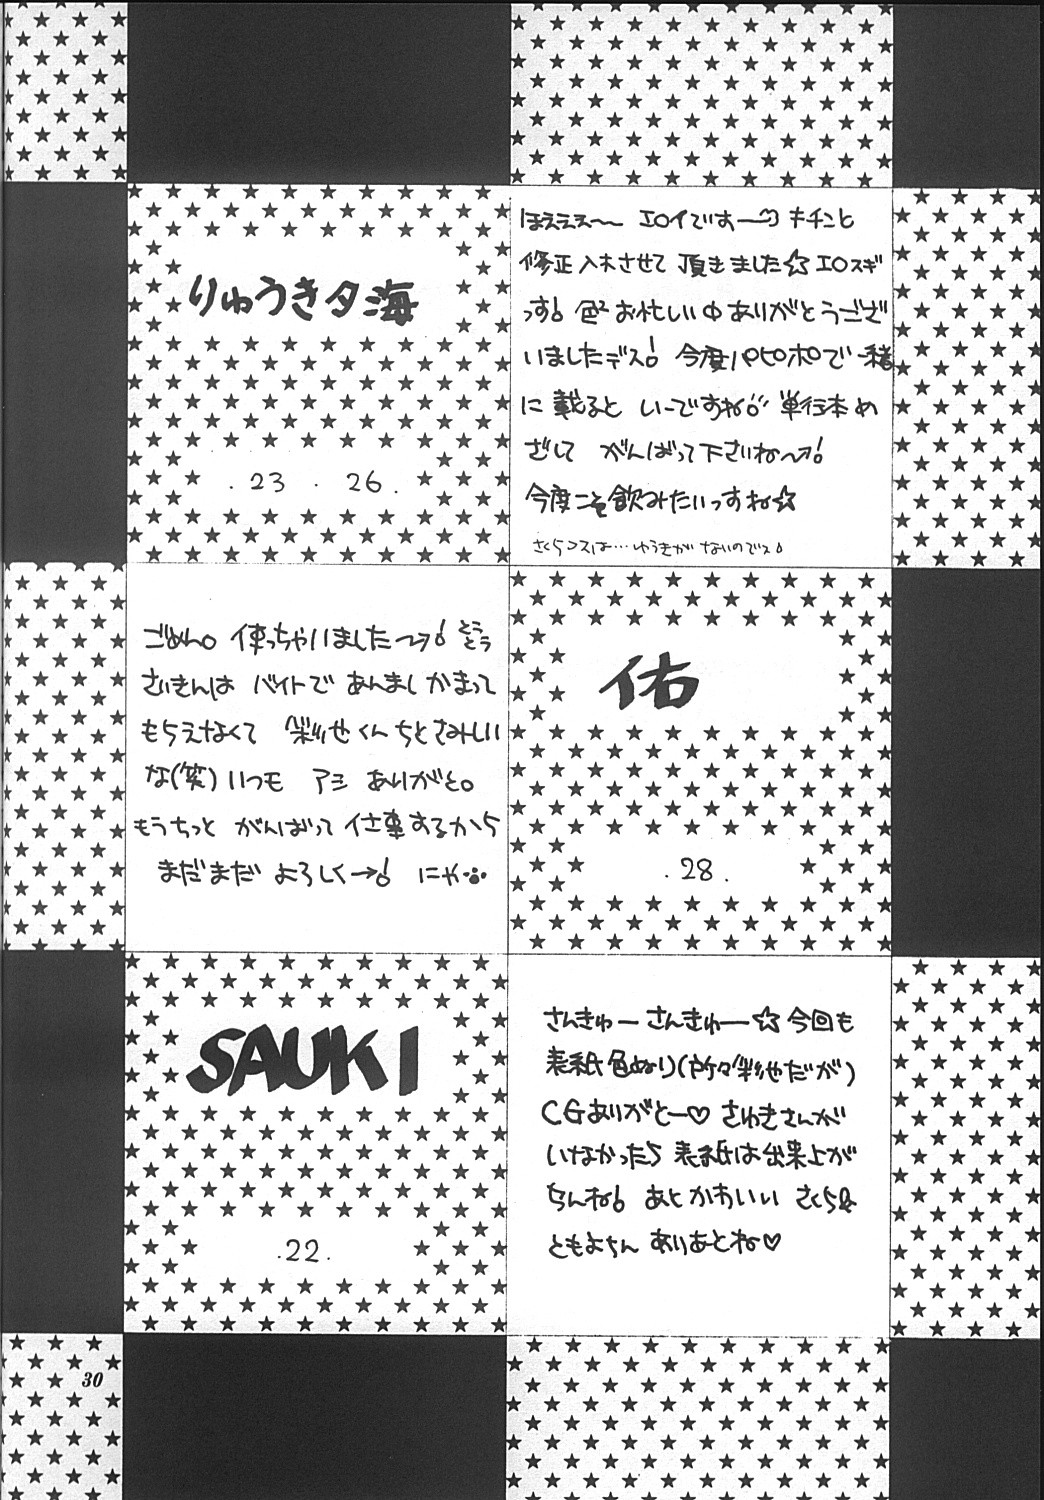 りゅうき夕海
.23 . 26.
ほえええ〜 エロイですー♡ キチンと
修正入れさせて 頂きました☆エロスギ
っす! 色々お忙しい中ありがとうござ
いましたデス! 今度パピポで一緒
に 載ると いーですね♪ 単行本め
ざして がんばって下さいね〜!
今度こそ飲みたいっすね☆
さくらコスは…ゆうきが ないのでス!
ごめん。使っちゃいました〜! とうとう
さいきんは バイトで あんましかまって
もらえなくて 彩世くんちとさみしい
な(笑) いつも アシ ありがと。
もうちっと がんばって 仕事するから
まだまだ よろしく→! にゃ
佑
.28.
SAUKI
.22.
さんきゅー さんきゅー☆今回も
表紙色ぬり(所々彩世だが)
CGありがとー♡ さゆきさんが
いなかったら 表紙は出来上が
らんね! あと かわいい さくら&
ともよちん ありあとね♡
30